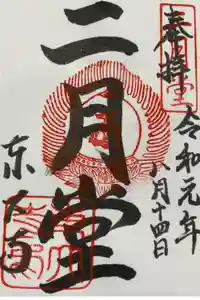 奉拝
令和元年
八月十四日
二月堂
东大寺